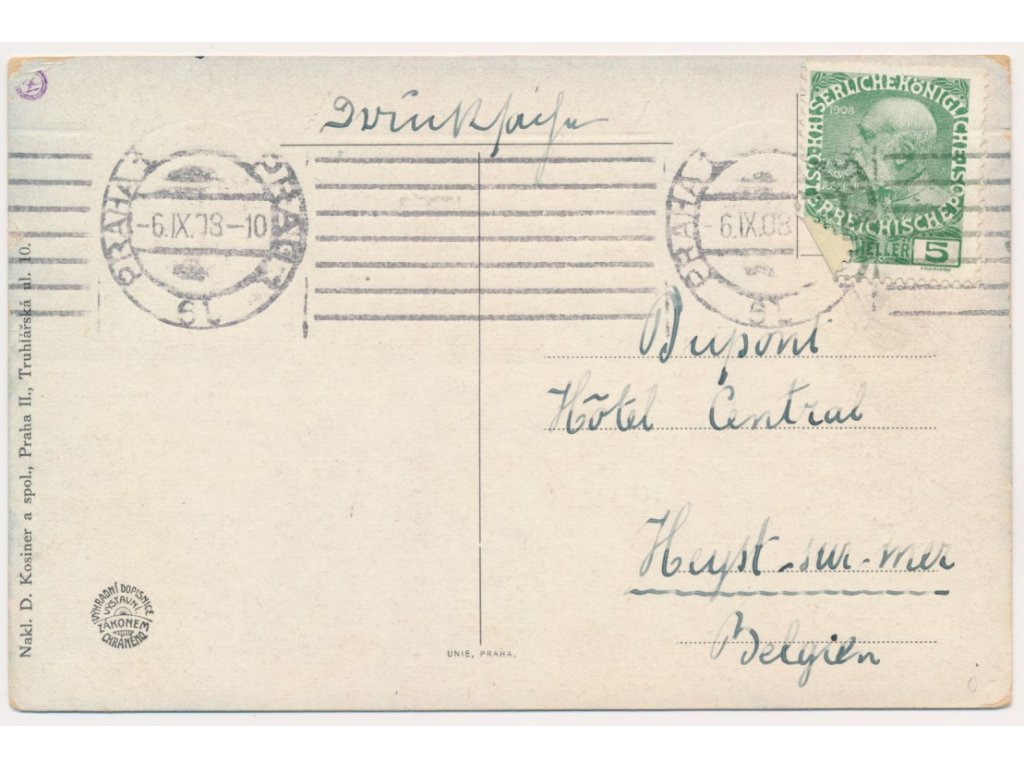 Drucksache
PRAHA 1 PRAG 1
-6.IX.08-10
PRAHA 1
-6.IX.08
1908
KAISERLICHE KÖNIGLICHE ÖSTERREICHISCHE POST
HELLER 5
Dupont
Hôtel Central
Heyst-sur-mer
Belgien
Nakl. D. Kosiner a spol., Praha II., Truhlářská ul. 10.
VÝHRADNÍ DOPISNICE
VÝSTAVNÍ
ZÁKONEM
CHRÁNĚNO
UNIE, PRAHA.